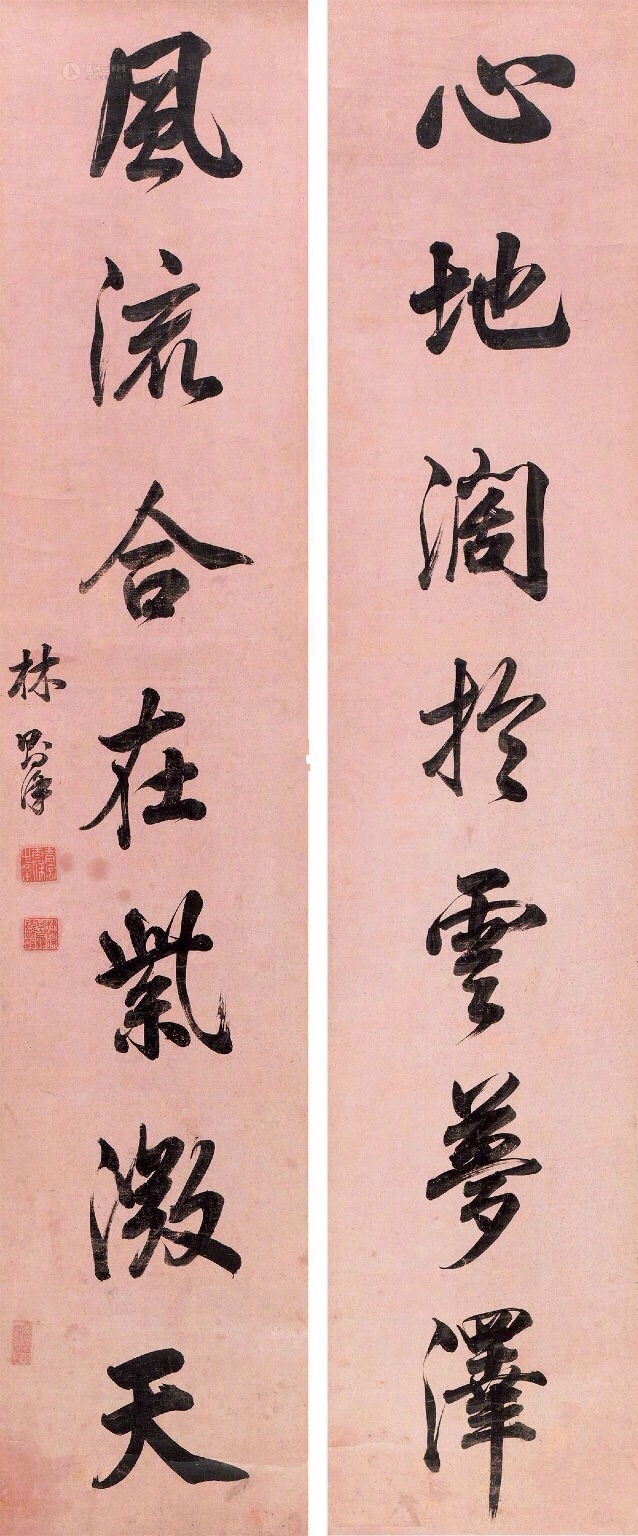 心地闊於雲夢澤
風流合在紫微天
林則徐